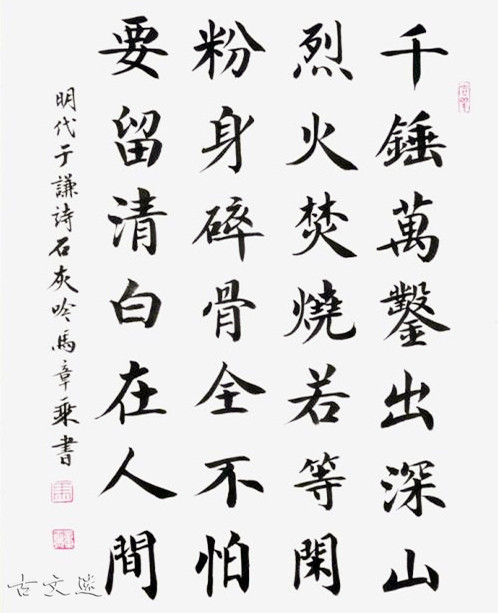 千錘萬鑿出深山
烈火焚燒若等閑
粉身碎骨全不怕
要留清白在人間
明代于謙詩石灰吟馬章乘書